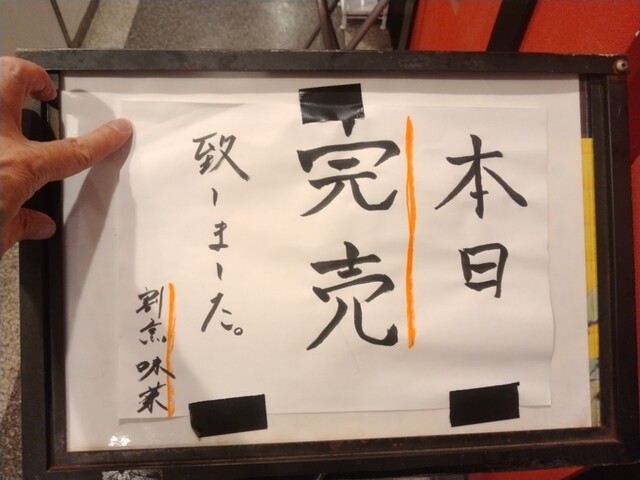 本日
完売
致しました。
割烹 味菜